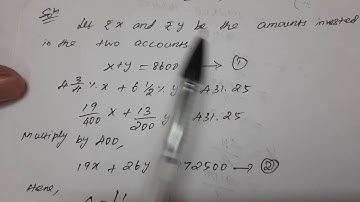 Soln
Let ₹x and ₹y be the amounts invested
in the two accounts
x+y=8600 → ①
4 3/4 % x + 6 1/2 % y 431.25
19/400 x + 13/200 y 431.25
Multiply by 400,
19x + 26y 72500 → ②
Here,